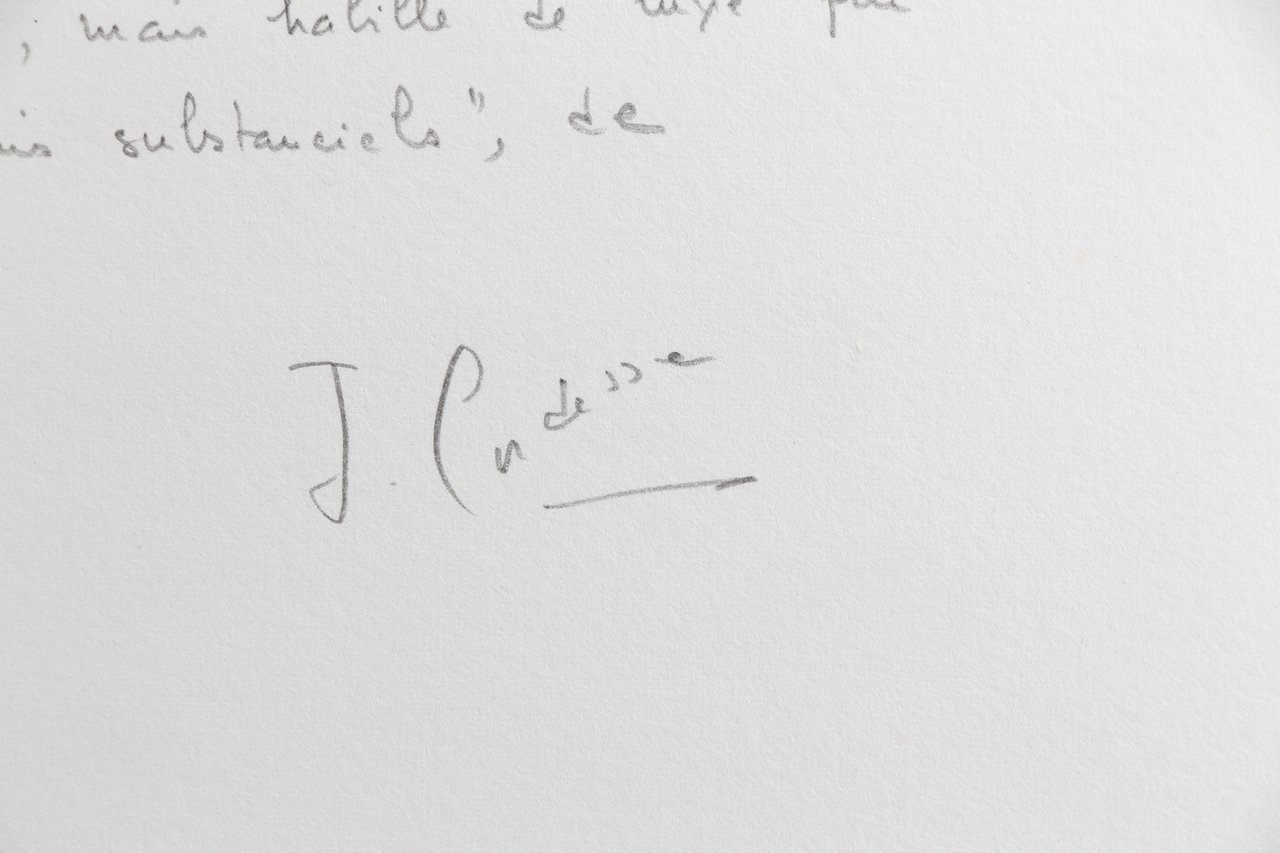 , mais habille de luxe
substanciels", de
J. Cndesse